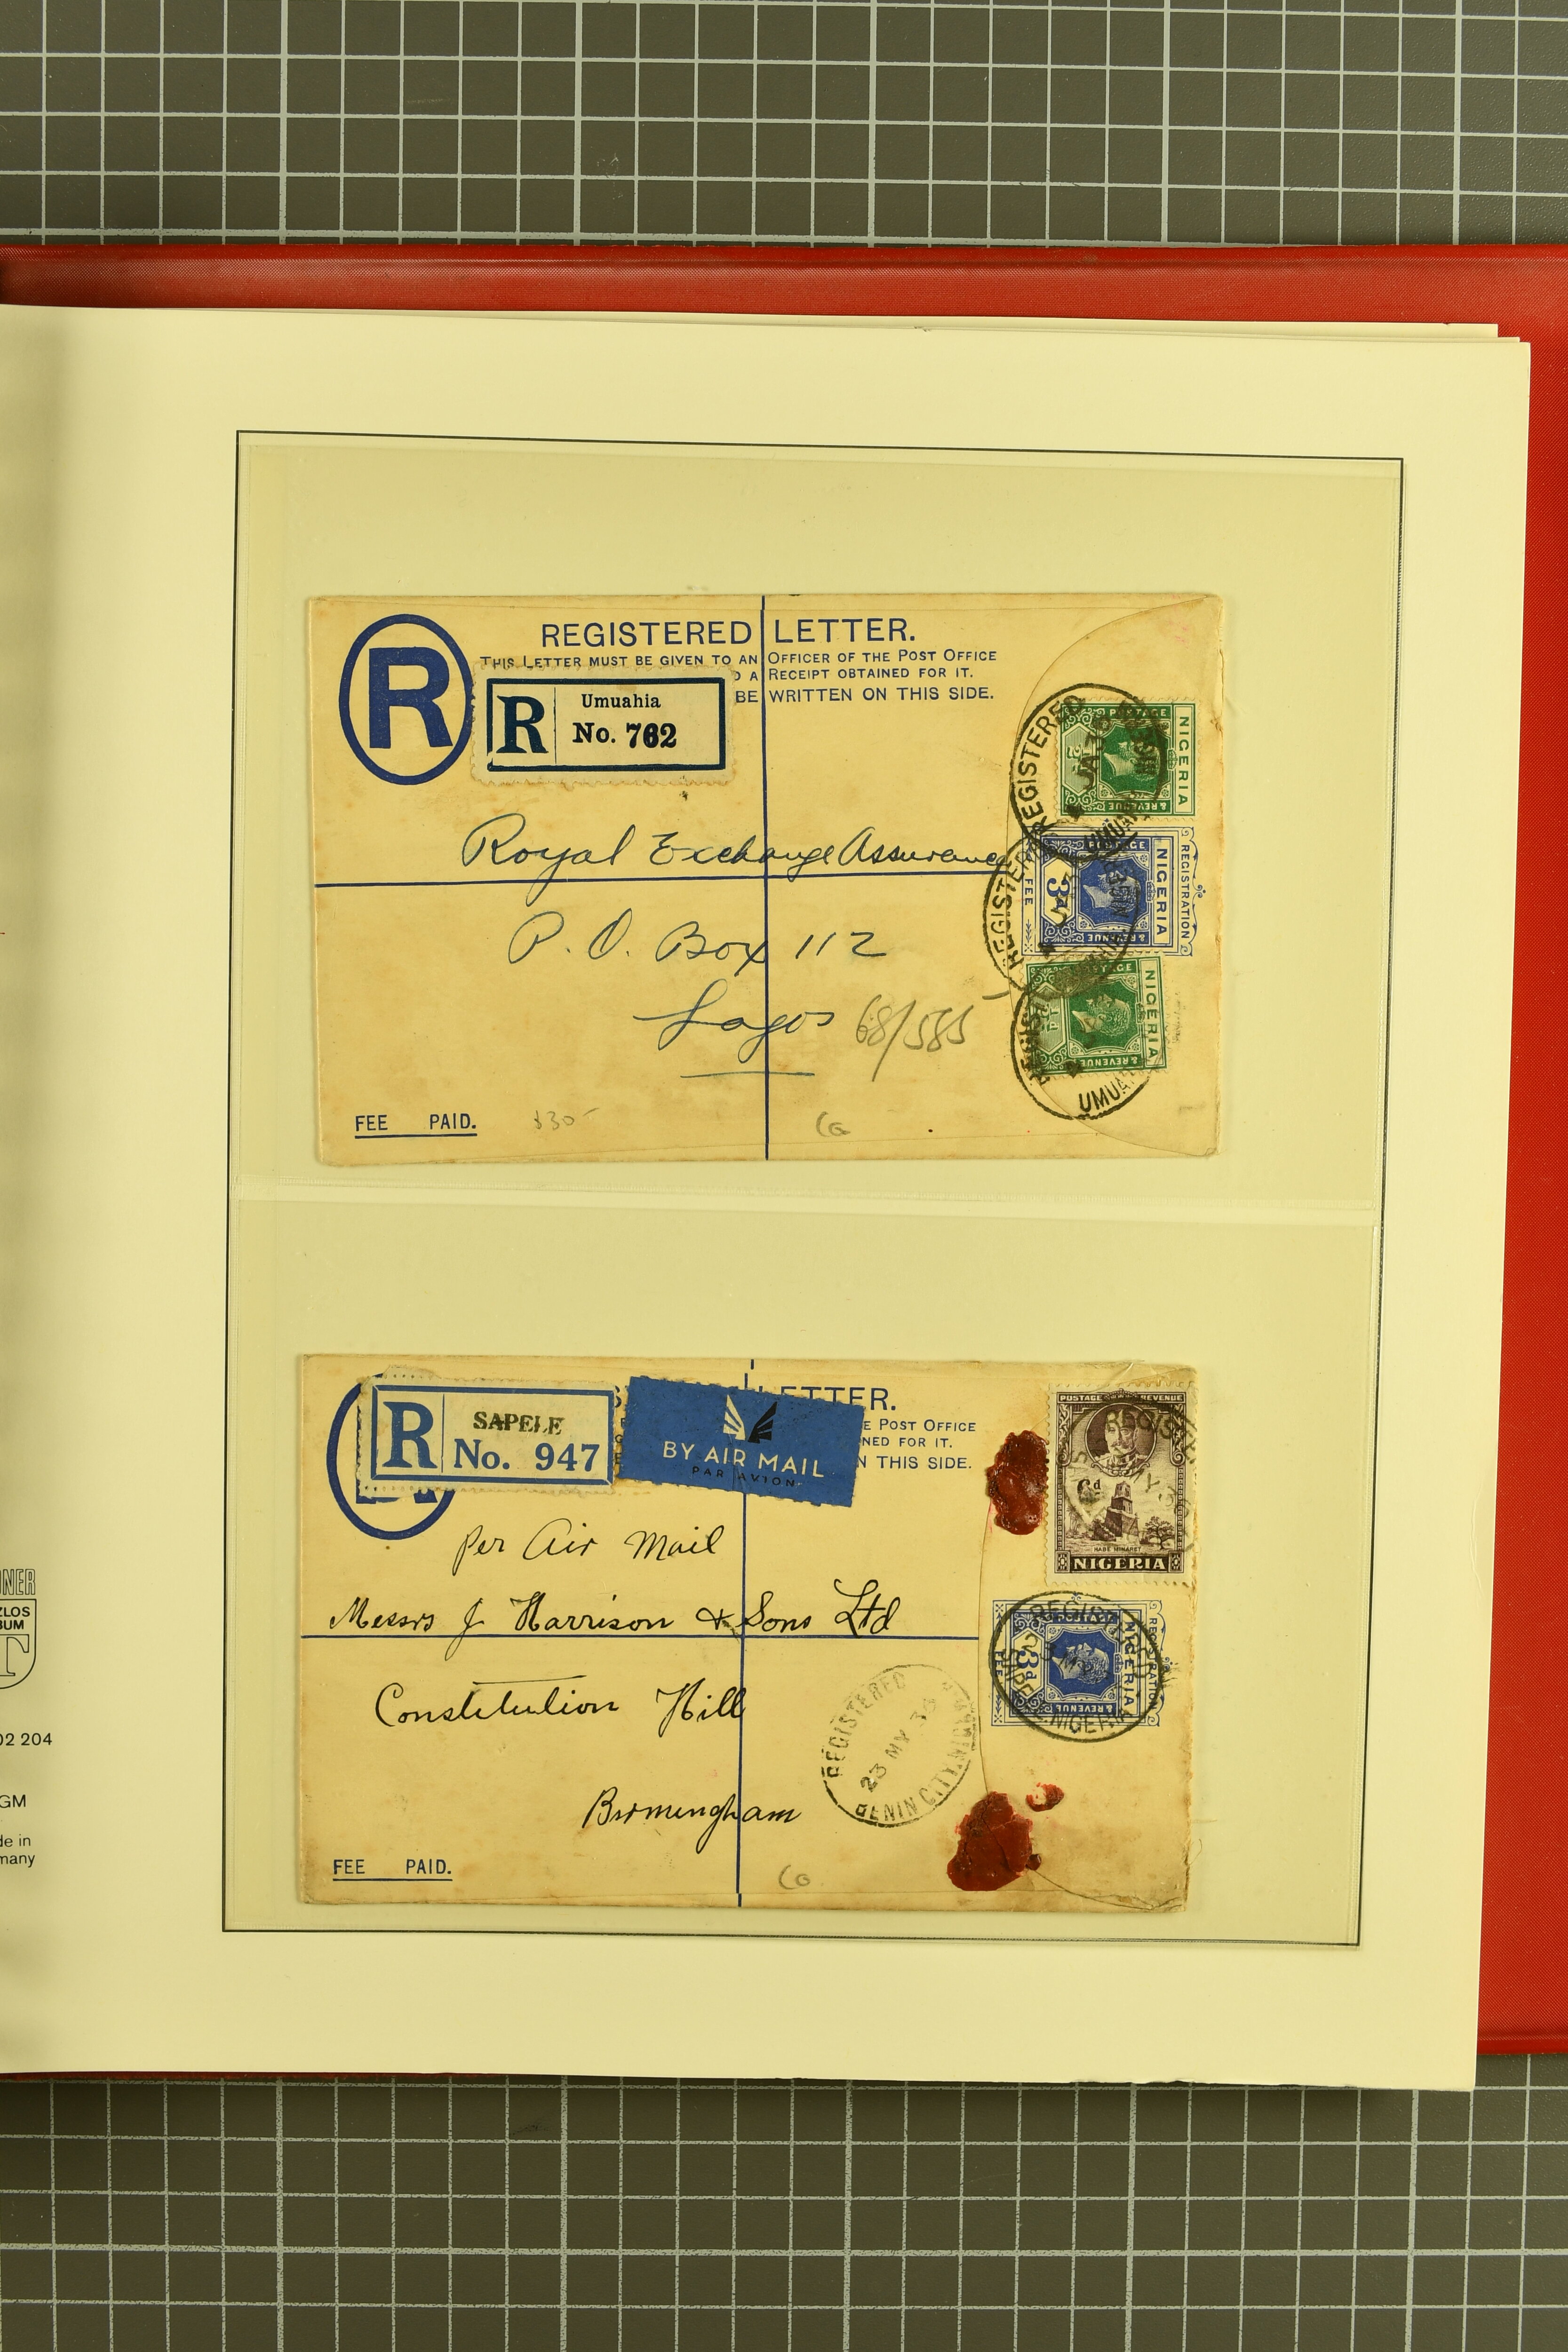 REGISTERED LETTER.
THIS LETTER MUST BE GIVEN TO AN OFFICER OF THE POST OFFICE
D A RECEIPT OBTAINED FOR IT.
BE WRITTEN ON THIS SIDE.
R
R
Umuahia
No. 762
Royal Exchange Assurance
P. O. Box 112
Lagos
68/585
FEE PAID.
$30-
REGISTERED
JA
UMUA
POSTAGE
& REVENUE
NIGERIA
REGISTERED
REGISTRATION
NIGERIA
POSTAGE
& REVENUE
3d
FEE
NIGERIA
& REVENUE
UMUA
ETTER.
E POST OFFICE
NED FOR IT.
N THIS SIDE.
R
SAPELE
No. 947
BY AIR MAIL
PAR AVION
per Air Mail
Messrs J Harrison & Sons Ltd
Constitution Hill
Birmingham
FEE PAID.
REGISTERED
23 MY 36
BENIN CITY. NIGERIA
POSTAGE REVENUE
6d
HABE MINARET
NIGERIA
REGISTRATION
NIGERIA
3d
& REVENUE
NIGERIA
NER
ZLOS
BUM
T
02 204
GM
de in
many